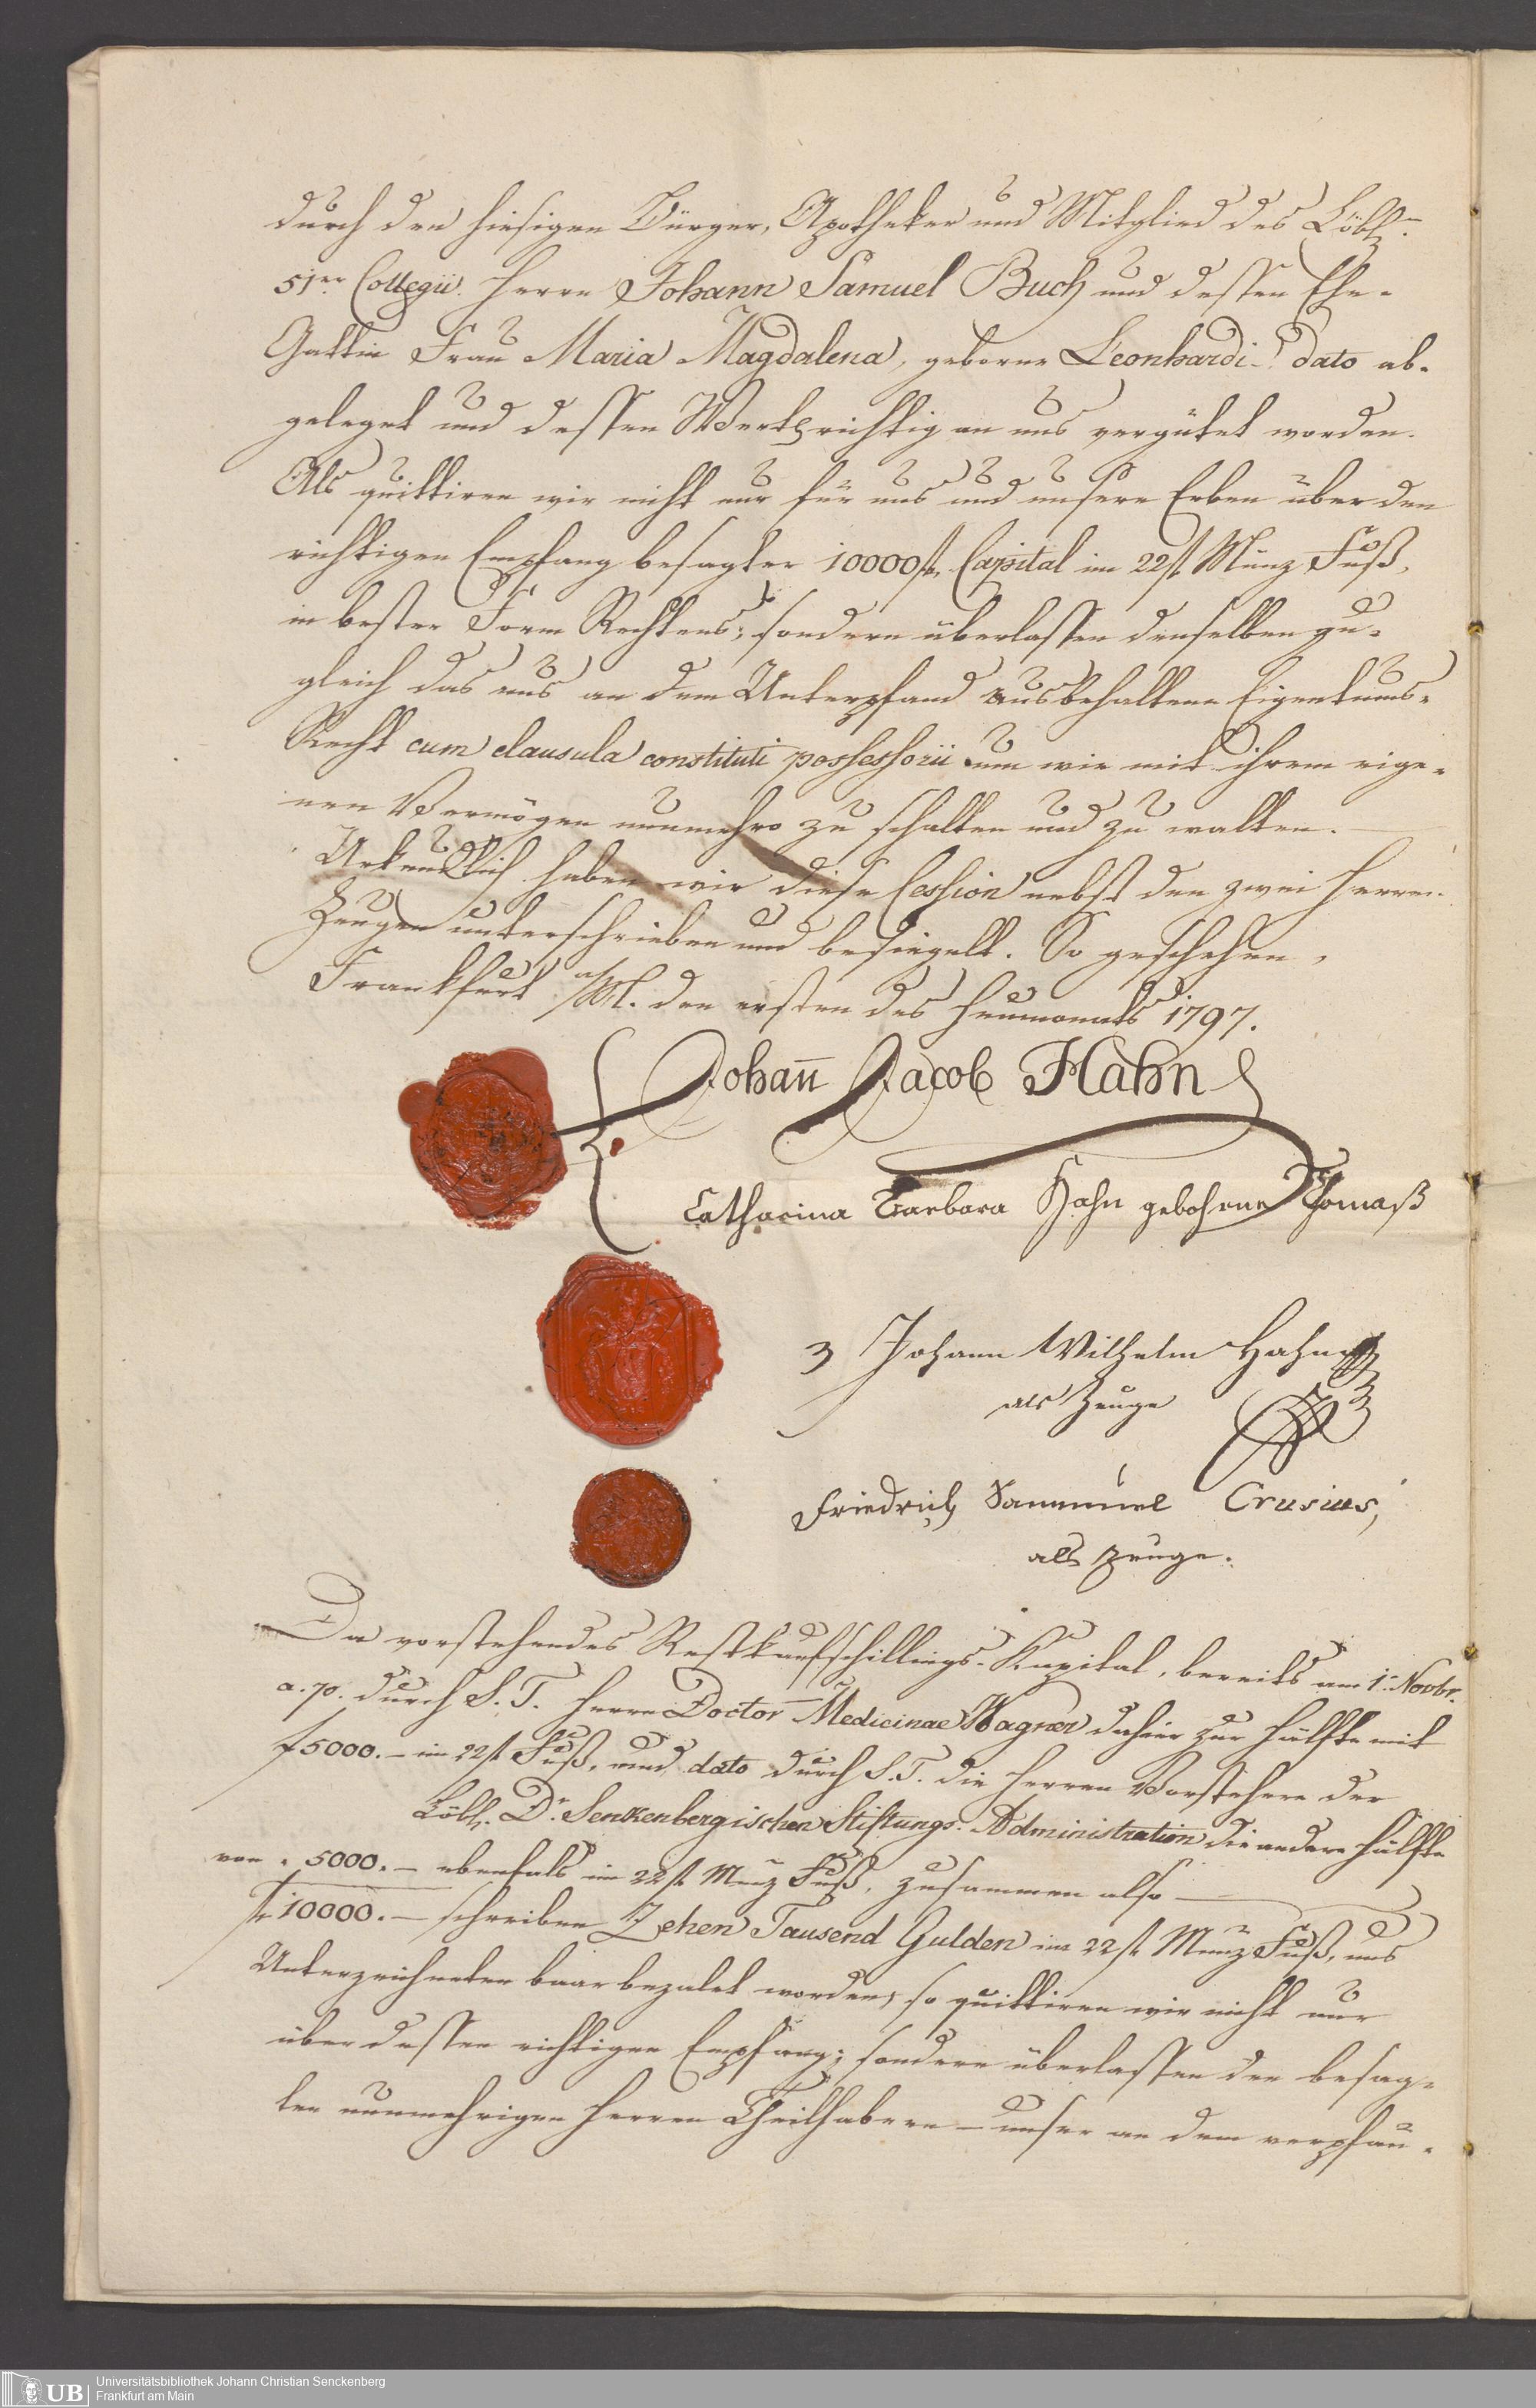 durch den hiesigen Bürger, Apotheker und Mitglied des Löbl.
51er Collegii. Herrn Johann Samuel Buch und dessen Ehe-
Gattin Frau Maria Magdalena, geborne Leonhardi-! dato ab-
geleget und dessen Werth richtig an uns vergütet worden.
Als quittiren wir nicht nur für uns und unsere Erben über den
richtigen Empfang besagter 10000 fl. Capital im 22 fl. Münz Fuß,
in bester Form Rechtens; sondern überlassen denselben zu-
gleich das uns an dem Unterpfand ausbehaltene Eigentums-
Recht cum clausula constituti possessorii um wie mit ihrem eige-
nen Vermögen nunmehro zu schalten und zu walten.
Urkundlich haben wir diese Cession nebst den zwei Herren
Zeugen unterschrieben und besiegelt. So geschehen,
Frankfurt a/M. den ersten des Heumonats 1797.
Johañ Jacob Hahn
Catharina Barbara Hahn gebohrne Thomaß
Johann Wilhelm Hahn
als Zeuge
Friedrich Sammuel Crusius,
als Zeuge.
Da vorstehendes Restkaufschillings-Kapital, bereits am 1. Novbr.
a. p. durch S. T. Herrn Doctor Medicinae Wagner dahier zur Hälfte mit
f 5000.- im 22 fl. Fuß, und dato durch S. T. die Herren Vorstehere der
Löbl. Dr. Senkenbergischen Stiftungs-Administration die andere Hälfte
von " 5000.- ebenfals im 22 fl. Münz Fuß, zusammen also
f 10000.- schreibe Zehen Tausend Gulden im 22 fl. Münz Fuß, uns
Unterzeichneten baar bezalet worden; so quittiren wir nicht nur
über dessen richtigen Empfang; sondern überlassen den besag-
ten nunmehrigen Herren Theilhabern - unser an dem verpfän-
UB
Universitätsbibliothek Johann Christian Senckenberg
Frankfurt am Main